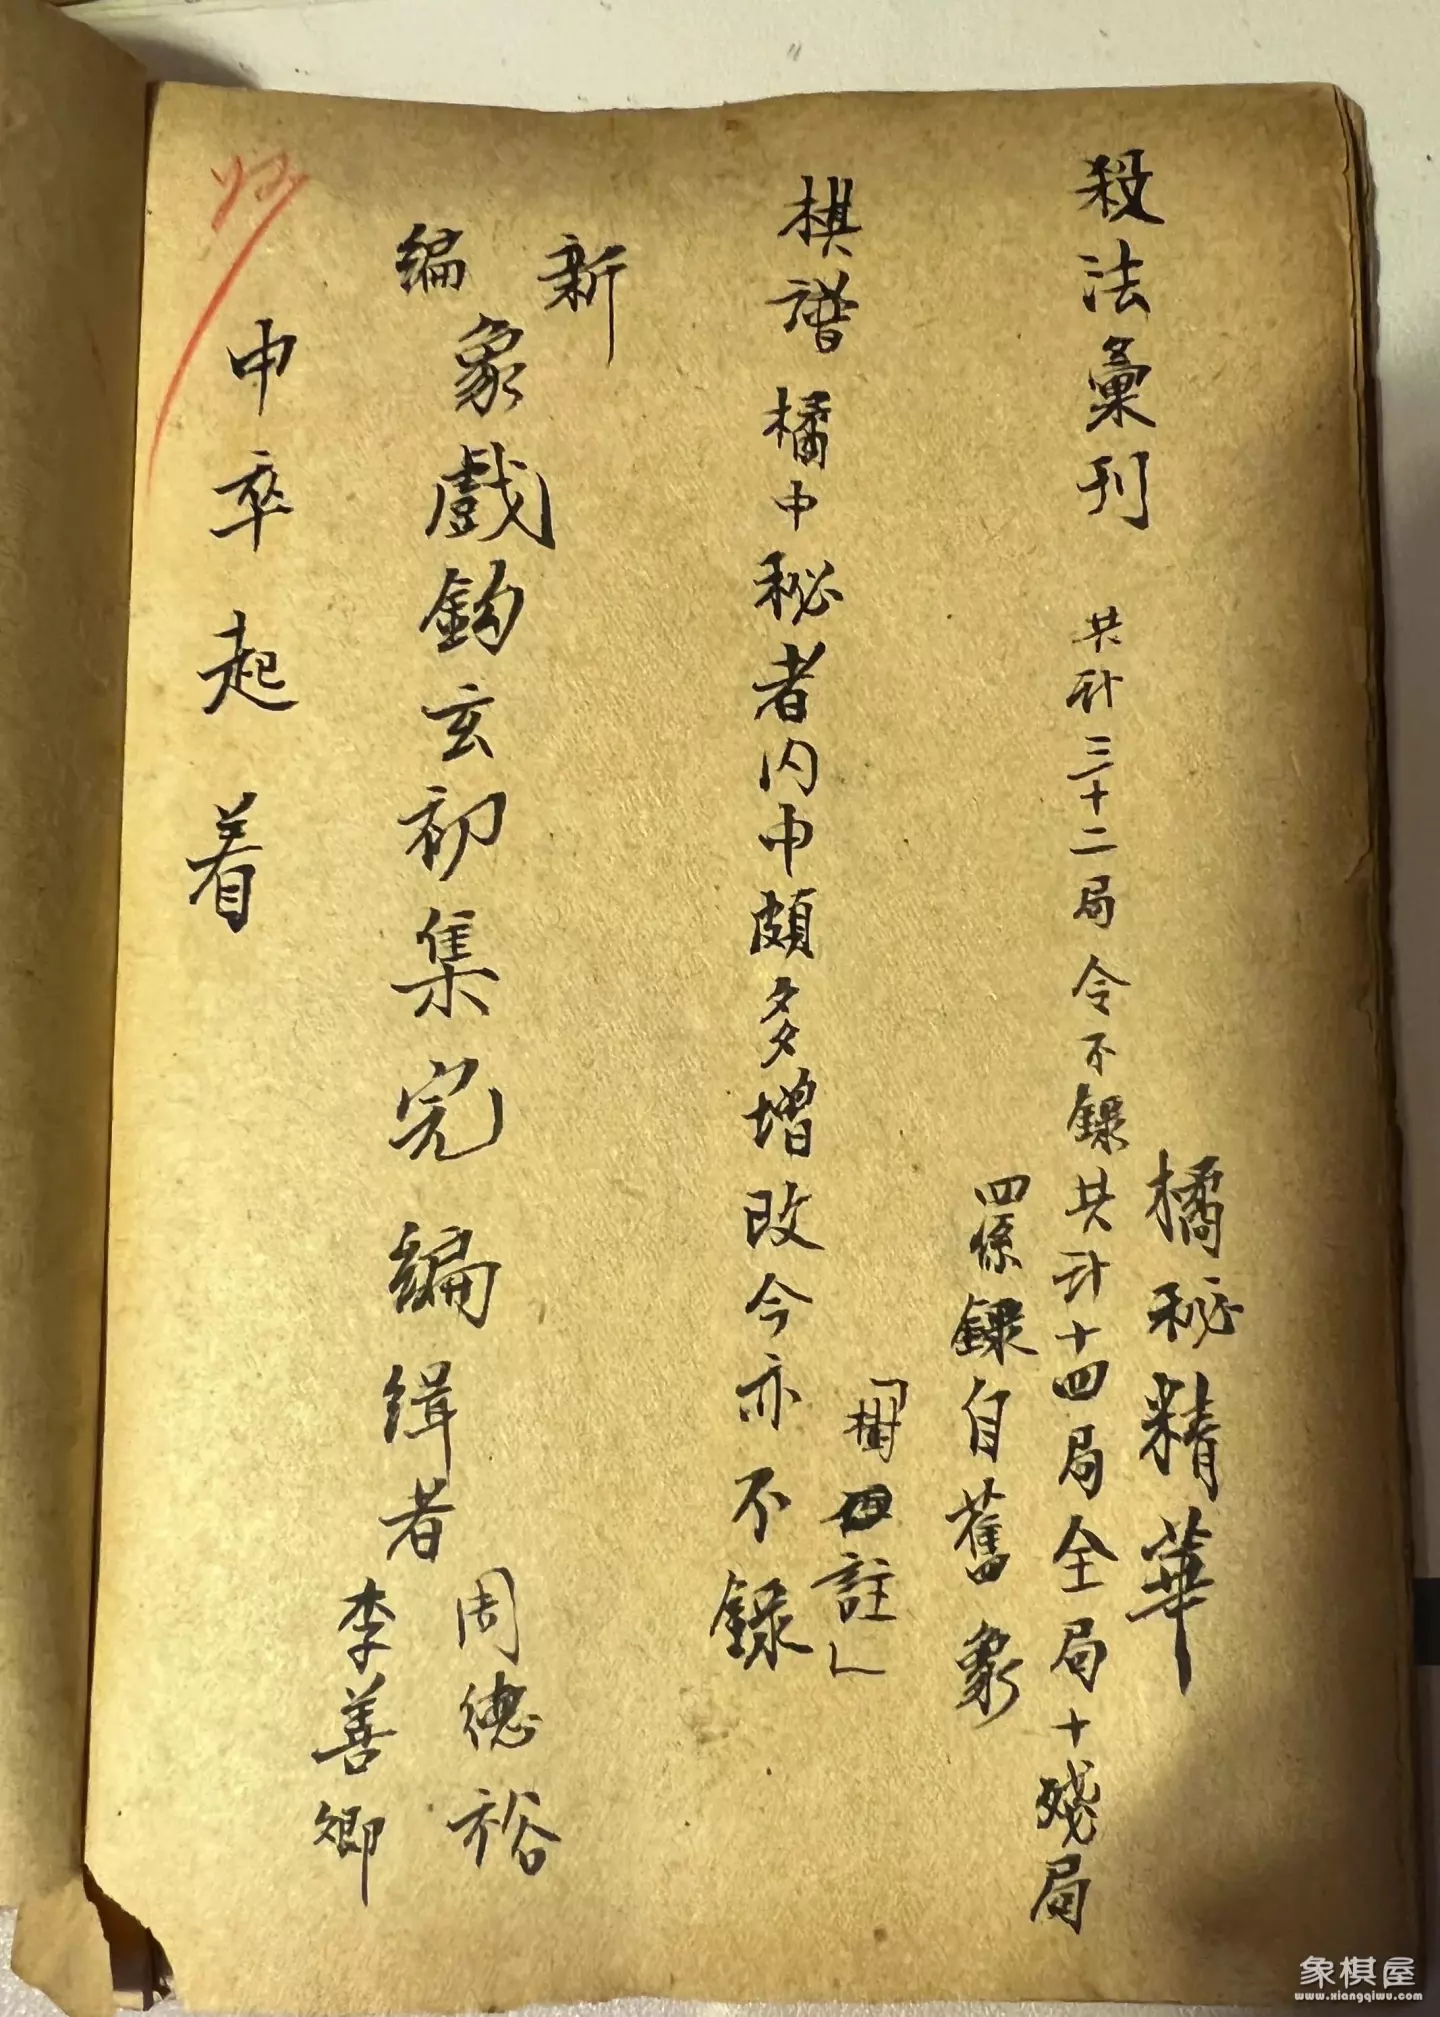 殺法彙刊 共計三十二局今不錄
橘秘精華
共計十四局全局十殘局
四係錄自舊象
棋譜橘中秘者内中頗多增改今亦不錄
註」
新編
象戲鈎玄初集完 編緝者
周德裕
李善卿
中卒起着
象棋屋
www.xiangqiwu.com